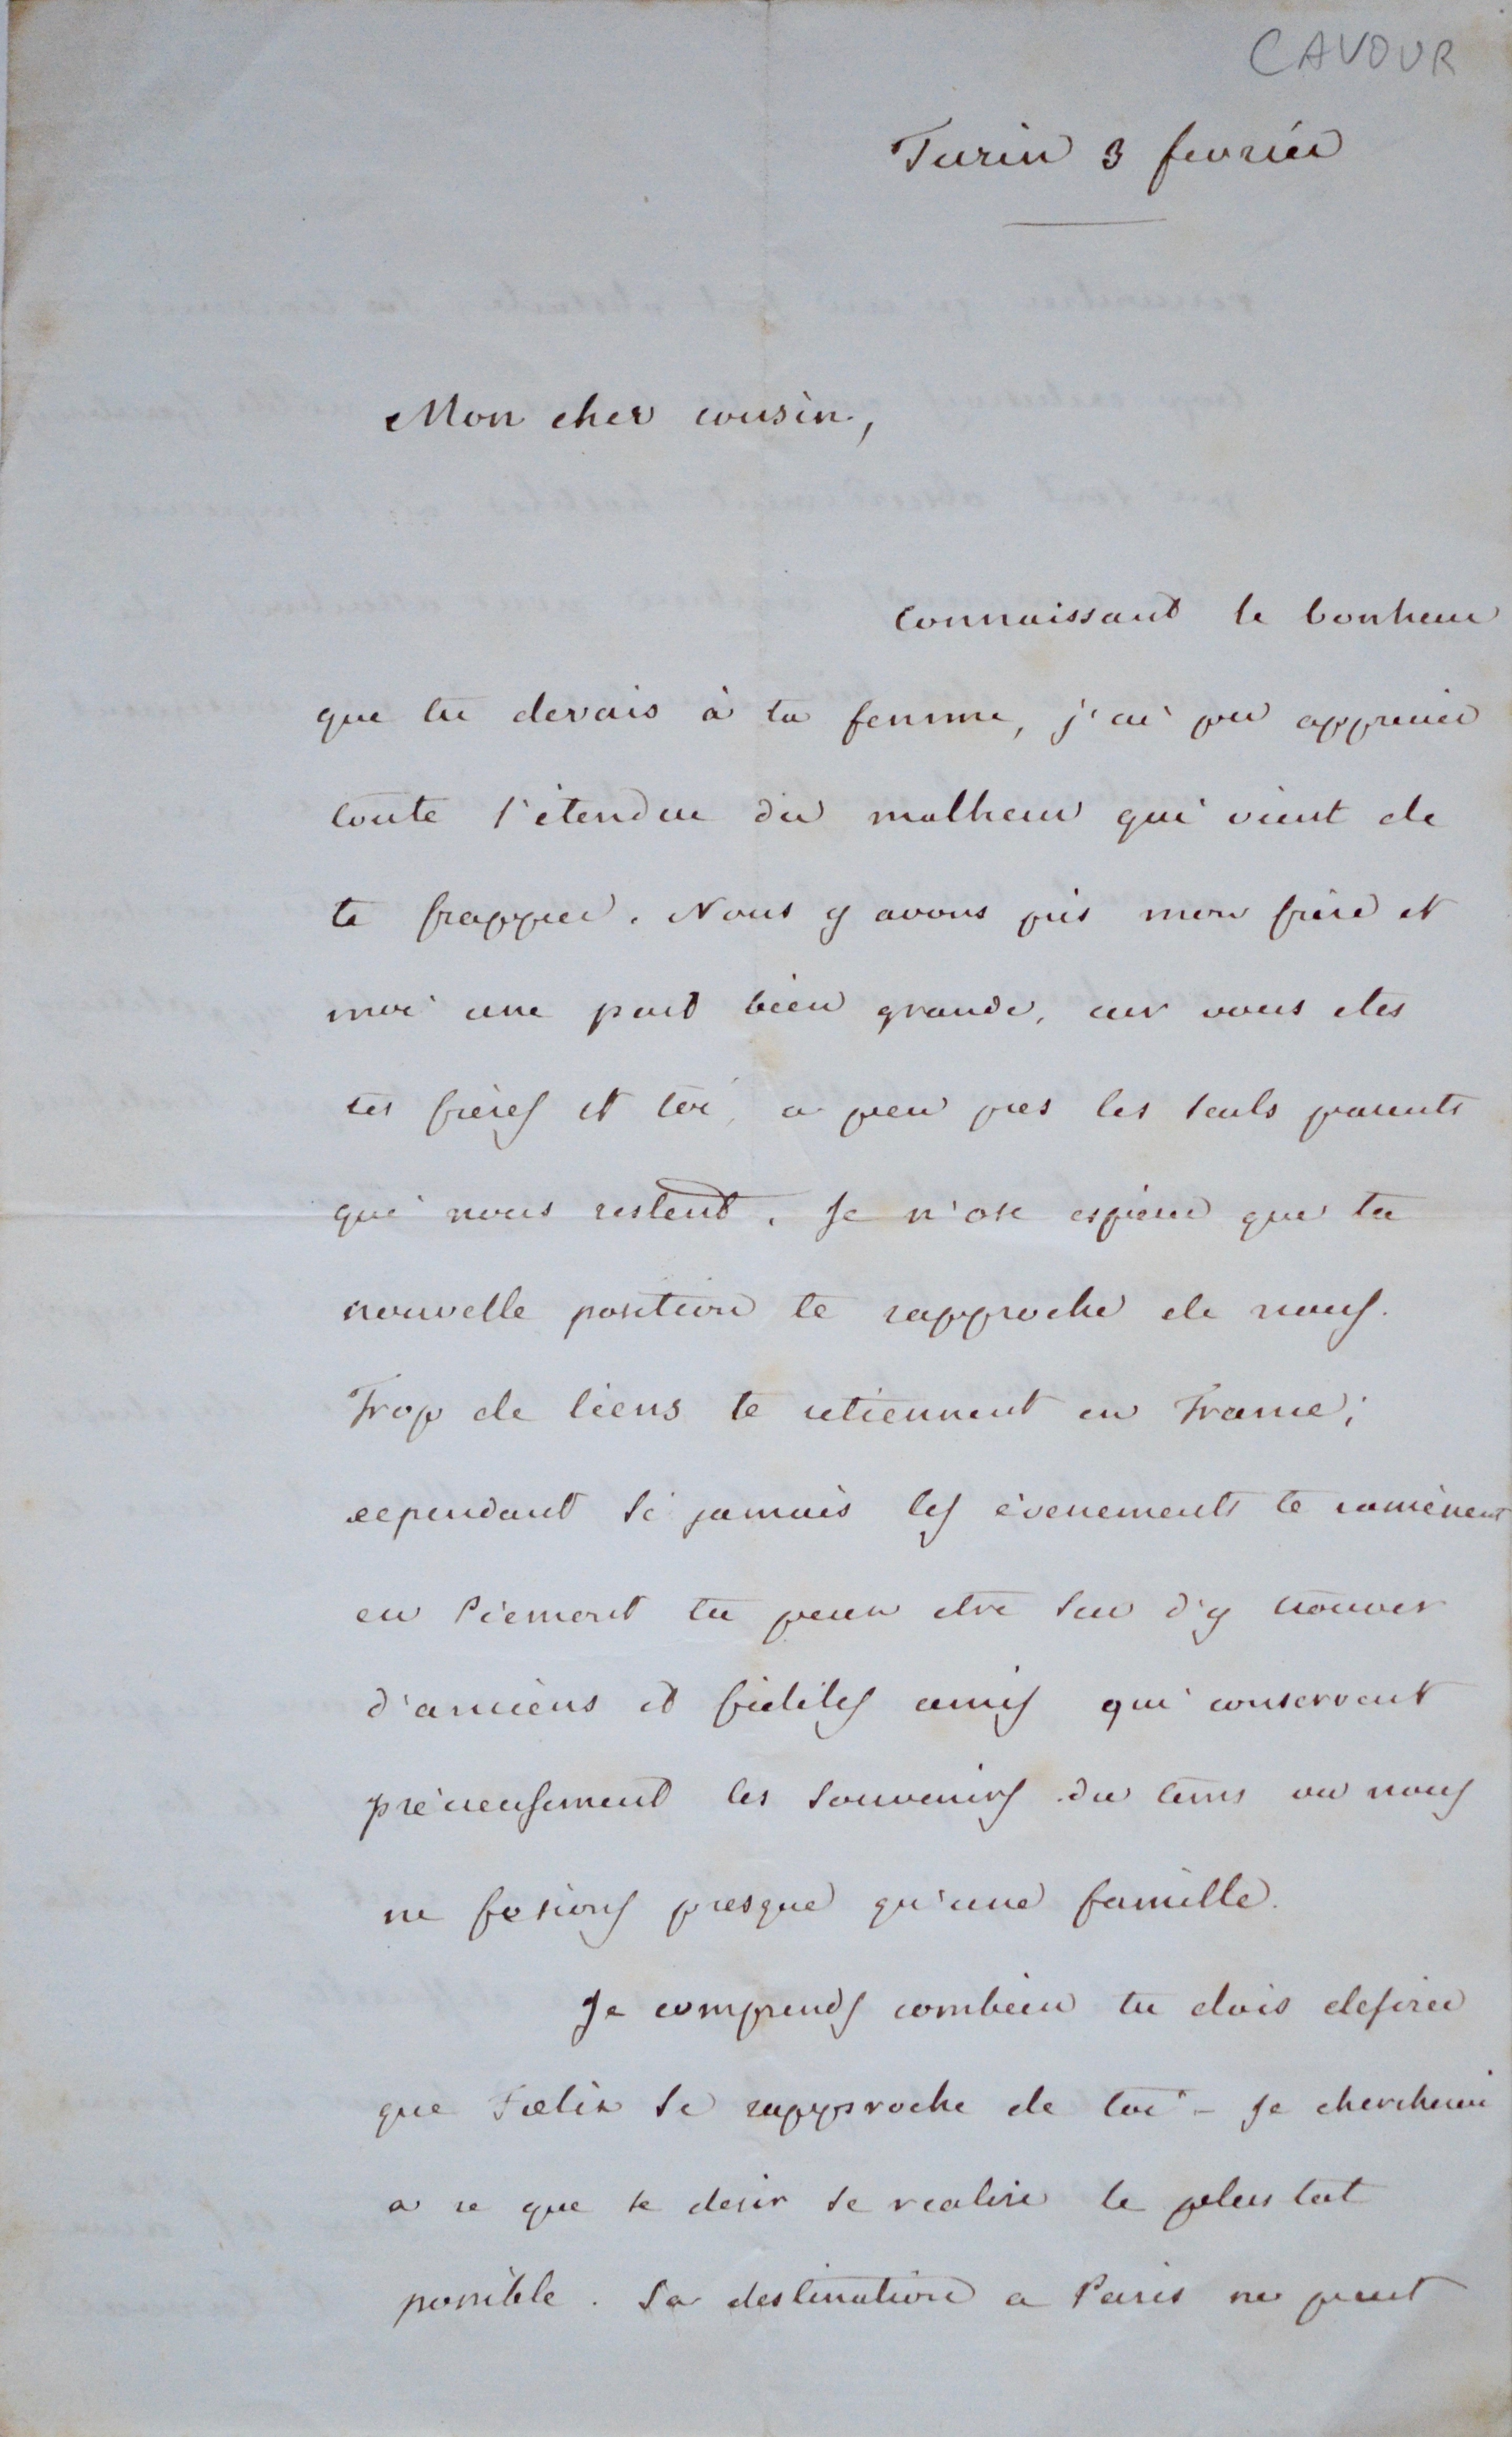 CAVOUR
Turin 3 fevrier
Mon cher cousin,
Connaissant le bonheur
que tu devais à ta femme, j'ai pu apprecier
toute l'étendue du malheur qui vient de
te frapper. Nous y avons pris mon frère et
moi une part bien grande, car vous etes
tes frères et toi, a peu pres les seuls parents
qui nous restent. Je n'ose esperer que ta
nouvelle position te rapproche de nous.
Trop de liens te retiennent en France;
cependant si jamais les évenements te ramènent
en Piemont tu peux etre sur d'y trouver
d'anciens et fidèles amis qui conservent
précieusement les souvenirs du tems ou nous
ne fesions presque qu'une famille.
Je comprends combien tu dois desirer
que Fœlix se rapproche de toi - Je chercherai
a ce que ce desir se realise le plus tot
possible. Sa destination a Paris ne peut